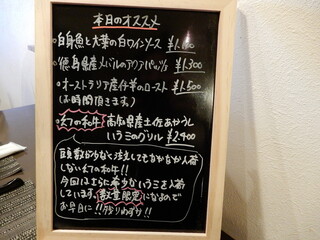 本日のオススメ
・白身魚と大葉の白ワインソース ¥1.100
・徳島県産メバルのアクアパッツァ ¥1.300
・オーストラリア産仔羊のロースト ¥1.500
(お時間頂きます)
・幻の和牛!高知県産土佐あかうし
いちミのグリル ¥2.400
頭数が少なく注文してもなかなか入荷
しない幻の和牛!!
今回はさらに希少ないちミを入荷
しています。数量限定になるので
お早目に!!残りわずか!!